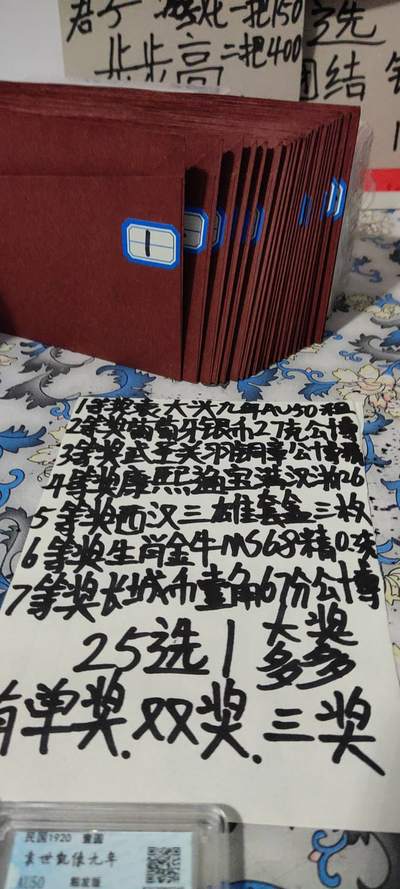 一把150
步步高二把400
选
团结
1
1等奖袁大头九年AU50粗
2等奖葡萄牙银币27克公博
3等奖
4等奖康熙通宝满汉浙26
5等奖西汉三雄套盒三枚
6等奖生肖金牛MS68精0.3克
7等奖长城币壹角67分公博
25选1 大奖多多
有单奖.双奖.三奖
民国1920 壹圆
袁世凯像九年
AU50 粗发版